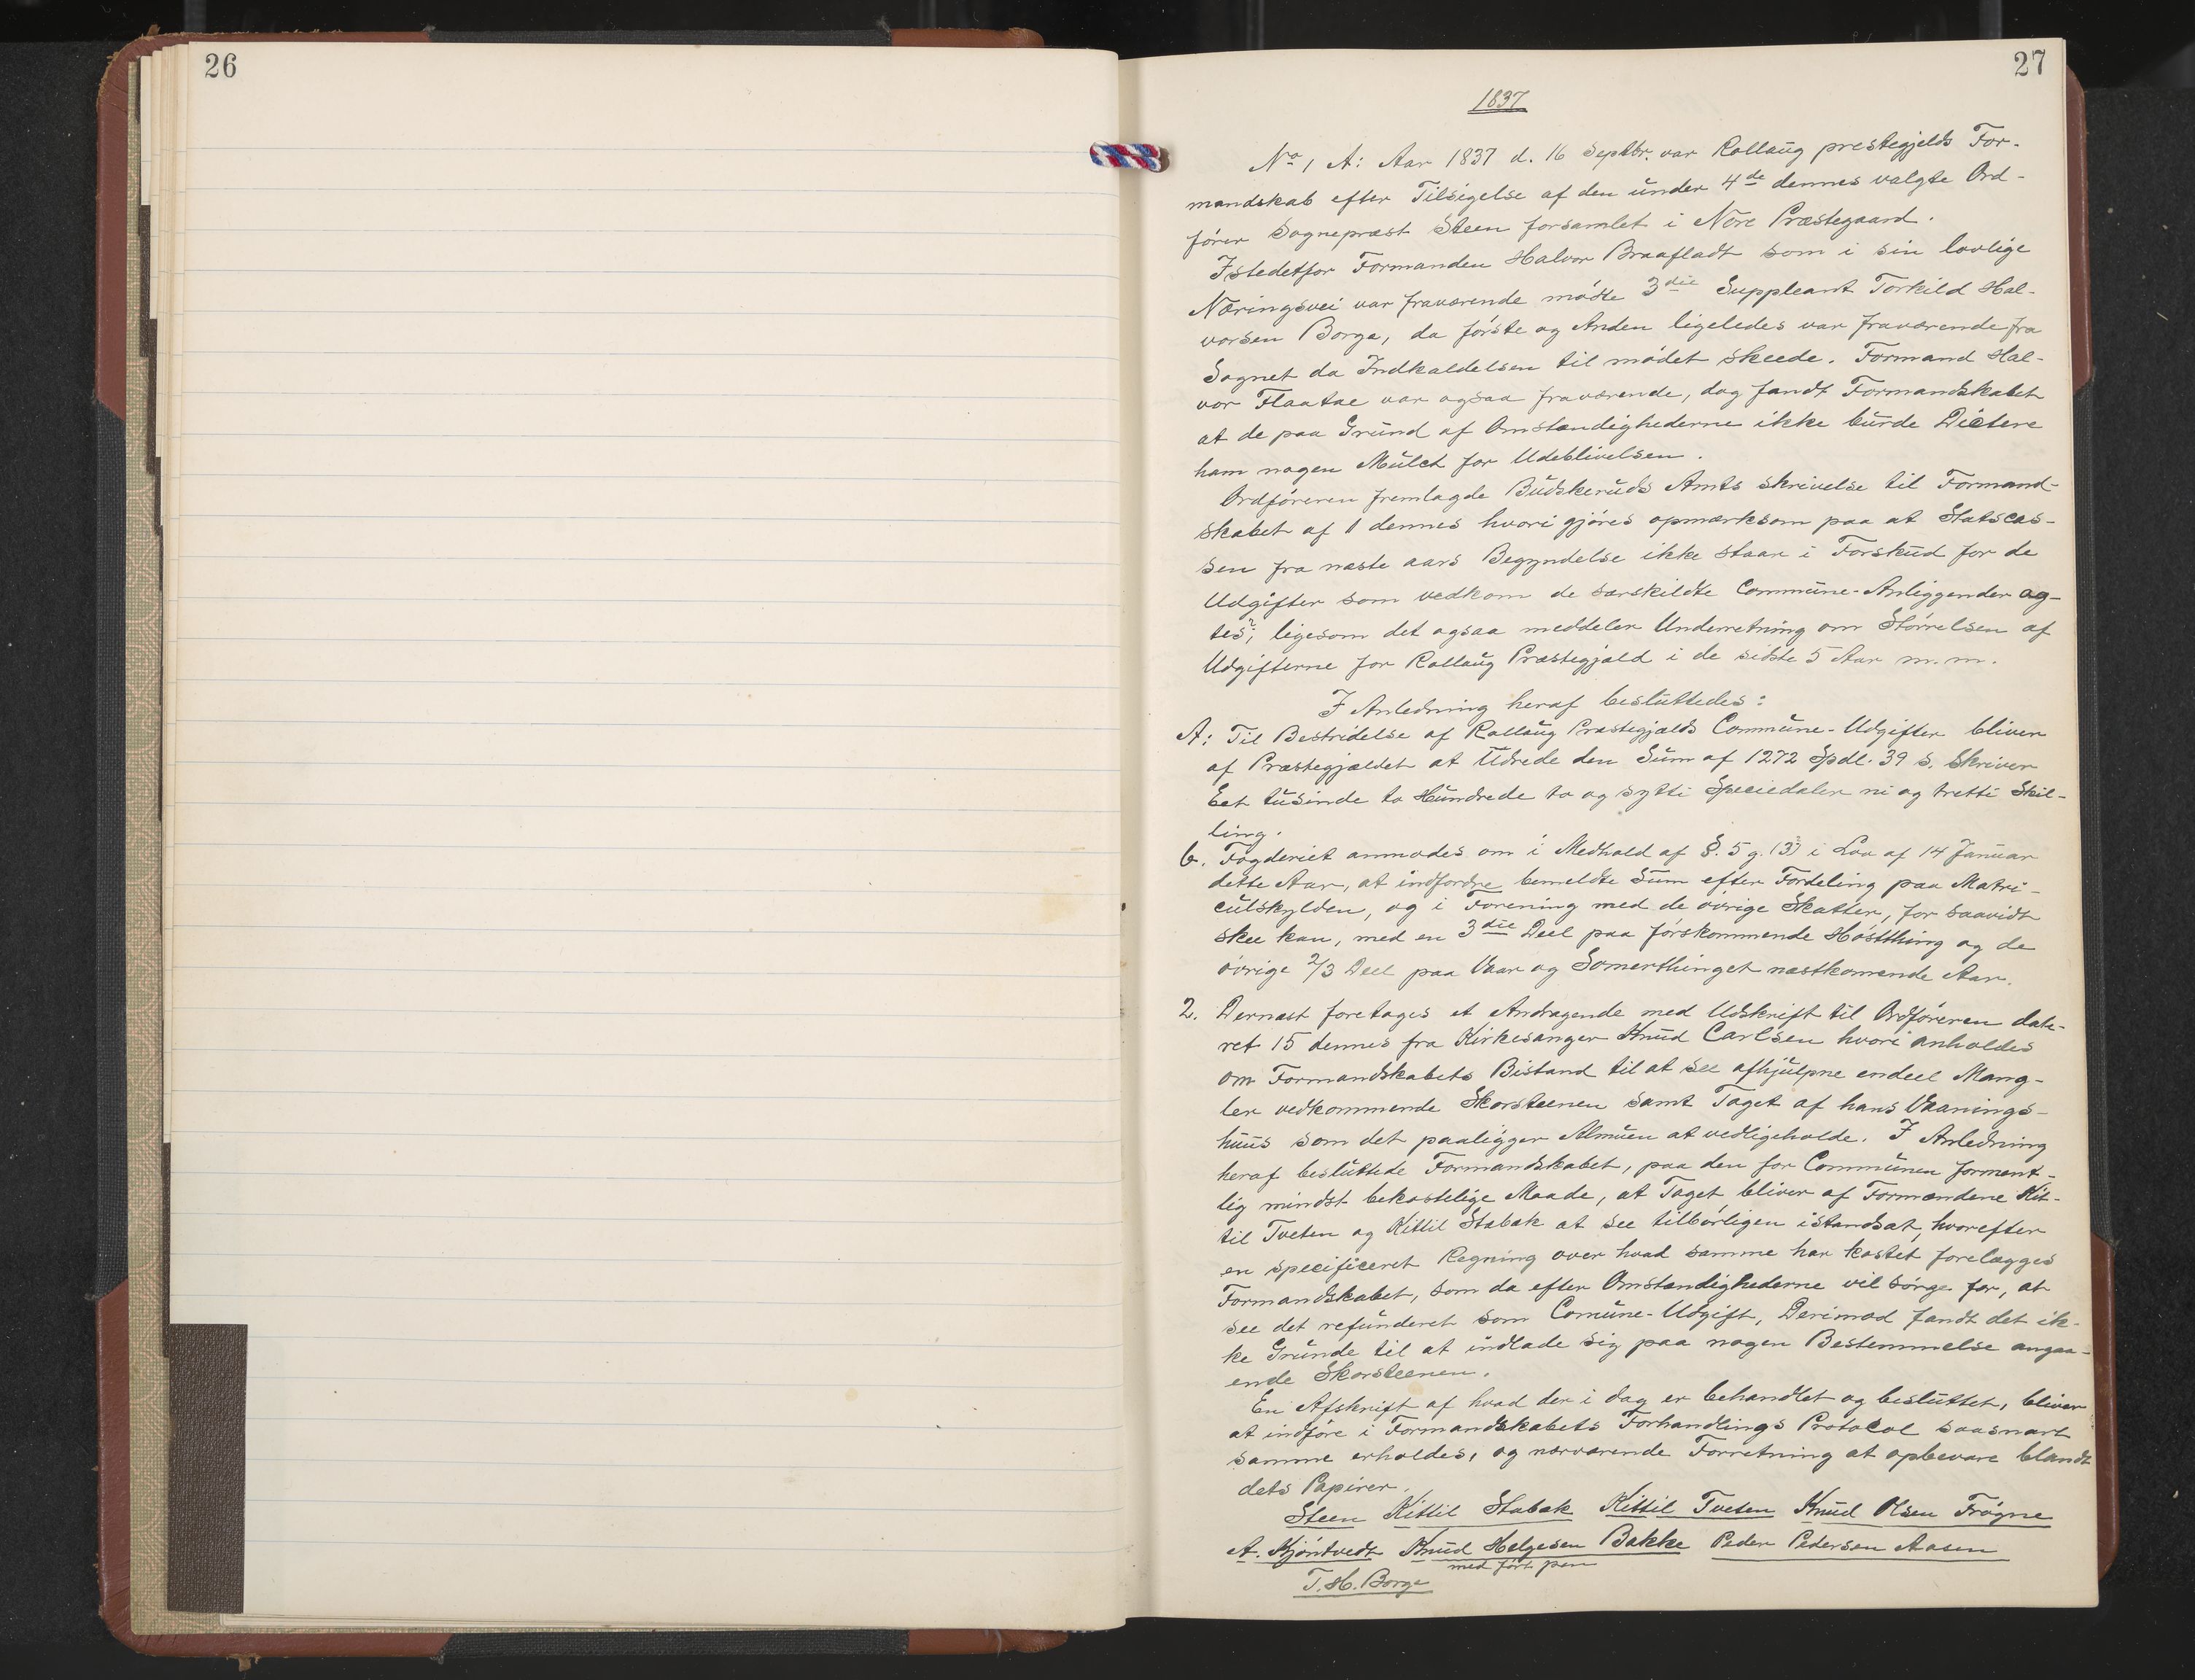 26
27
1837
No 1 A: Aar 1837 d. 16 Septbr. var Rollaug prestegjelds For-
mandskab efter Tilsigelse af den under 4de dennes valgte Ord-
fører Sognepræst Steen forsamlet i Nore Præstegaard.
Istedetfor Formanden Halvor Braafladt som i sin lovlige
Næringsvei var fraværende mødte 3die Suppleant Torkild Hal-
vorsen Borge, da første og Anden ligeledes var fraværende fra
Sognet da Indkaldelsen til mødet skeede. Formand Hal-
vor Flaatae var ogsaa fraværende, dog fandt Formandskabet
at de paa Grund af Omstændighederne ikke burde Dictere
ham nogen Mulct for Udeblivelsen.
Ordføreren fremlagde Buskeruds Amts skrivelse til Formand-
skabet af 1 dennes hvori gjøres opmærksom paa at Statscas-
sen fra næste aars Begyndelse ikke staar i Forskud for de
Udgifter som vedkom de særskildte Commune-Anliggender ag-
tes?; ligesom det ogsaa meddeler Underretning om Størrelsen af
Udgifterne for Rollaug Præstegjæld i de sidste 5 Aar m.m.
I Anledning heraf besluttedes:
A: Til Bestridelse af Rollaug Præstegjælds Commune-Udgifter bliver
af Præstegjældet at Udrede den Sum af 1272 Spdl. 39 s. Skriver
Eet tusinde to Hundrede to og sytti Speciedaler ni og tretti Skil-
ling.
b. Fogderiet anmodes om i Medhold af §. 5 g. (3) i Lov af 14 Januar
dette Aar, at indfordre bemeldte Sum efter Fordeling paa Matri-
culskylden, og i Forening med de øvrige Skatter, for saavidt
skee kan, med en 3die Deel paa førskommende Høstthing og de
øvrige 2/3 Deel paa Vaar og Somerthinget næstkomende Aar.
2. Dernæst foretages et Andragende med Udskrift til Ordføreren date-
ret 15 dennes fra Kirkesanger Knud Carlsen hvori anholdes
om Formandskabets Bistand til at see afhjulpne endeel Mang-
ler vedkommende Skorsteenen samt Taget af hans Vaanings-
huus som det paaligger Almuen at vedligeholde. I Anledning
heraf besluttede Formandskabet, paa den for Communen forment-
lig mindst bekostelige Maade, at Taget bliver af Formændene Kit-
til Tveten og Kittil Stabak at see tilbørligen istandsat, hvorefter
en specificeret Regning over hvad samme har kostet forelægges
Formandskabet, som da efter Omstændighederne vil sørge for, at
see det refunderet som Comune-Udgift, Derimod fandt det ik-
ke Grunde til at indlade sig paa nogen Bestemmelse angaa-
ende Skorsteenen.
En Afskrift af hvad der i dag er behandlet og besluttet, bliver
at indføre i Formandskabets Forhandlings Protocol saasnart
samme erholdes, og nærværende Forretning at opbevare blandt
dets Papirer.
Steen Kittil Stabak Kittil Tveten Knud Olsen Frøgne
A. Kjøntvedt Knud Helgesen Bakke Peder Pedersen Aasen
med ført pen
T. H. Borge